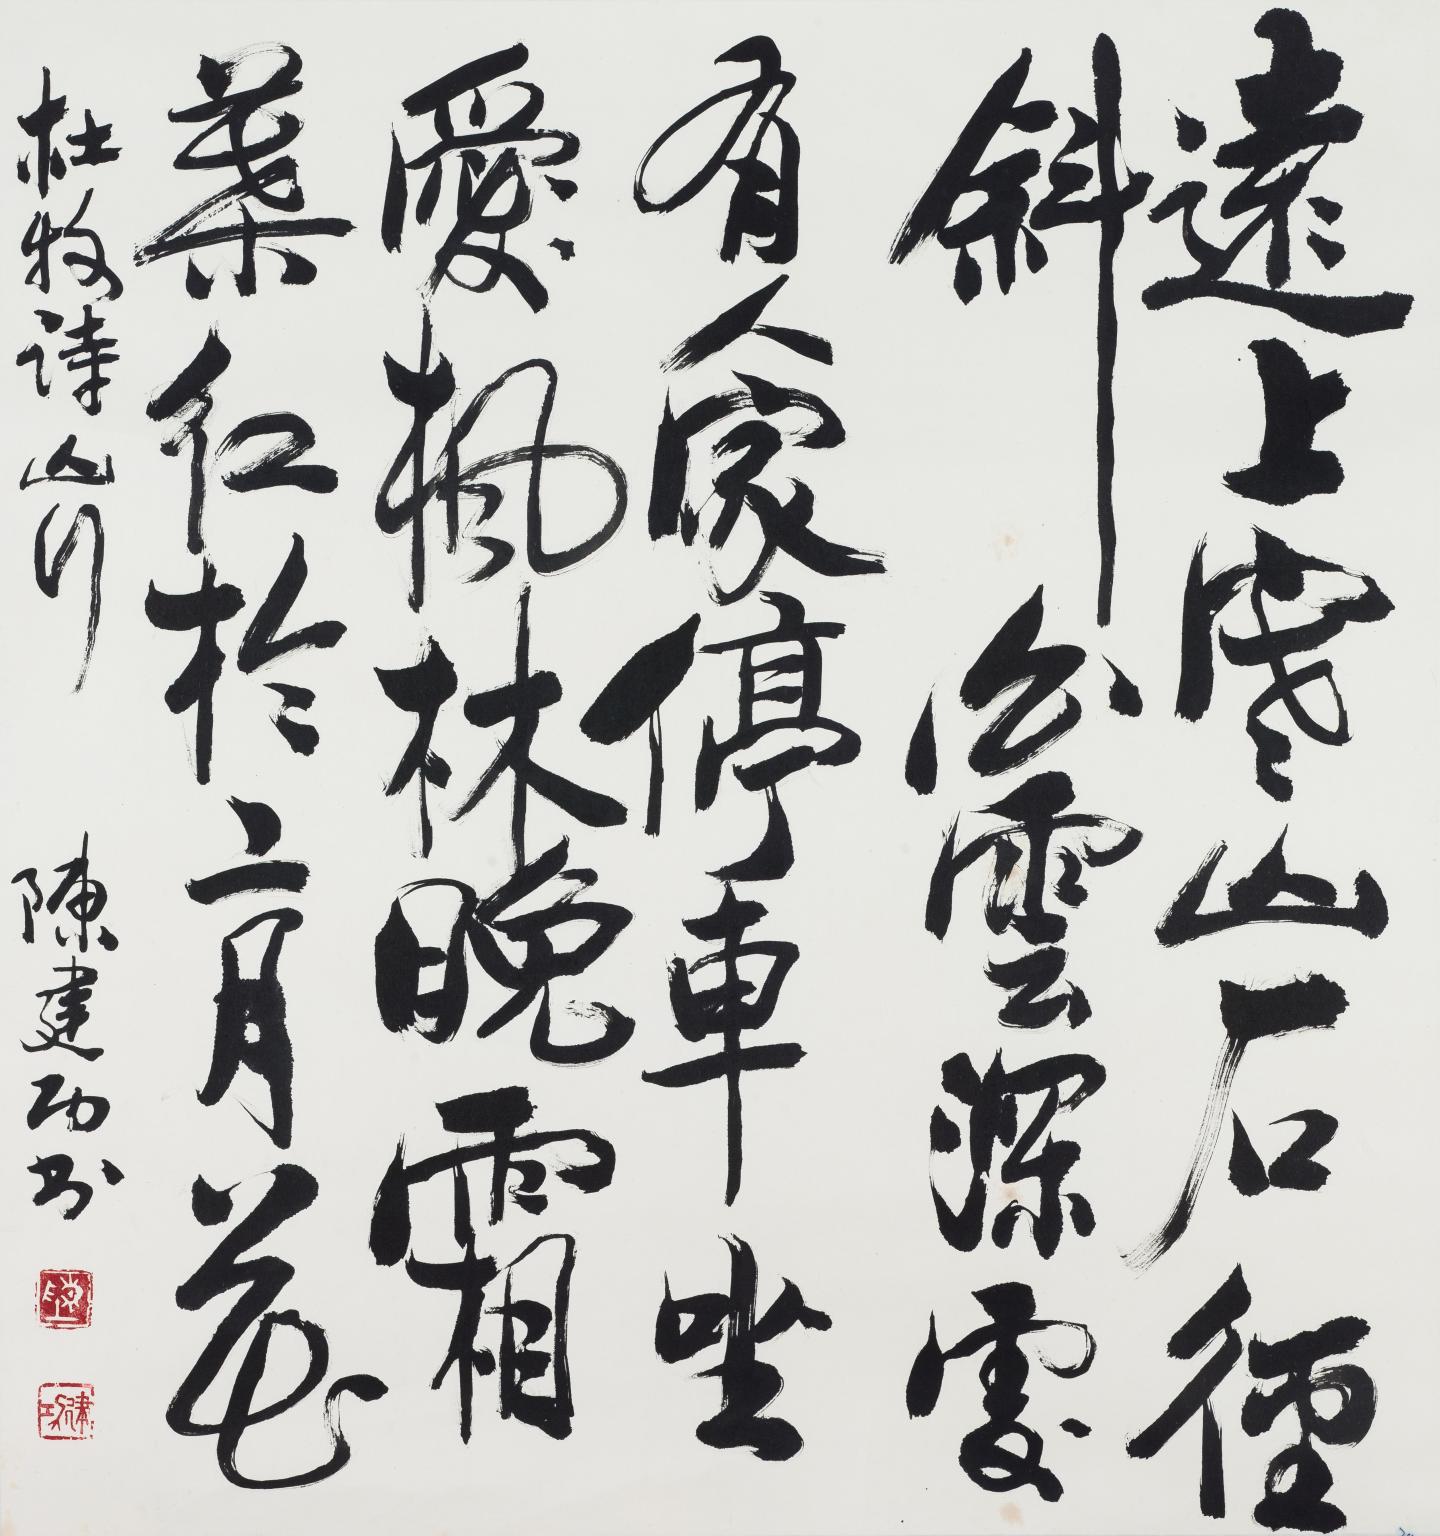 遠上寒山石徑
斜白雲深處
有人家停車坐
愛楓林晚霜
葉紅於二月花
杜牧詩山行 陳建功書
陳
建功